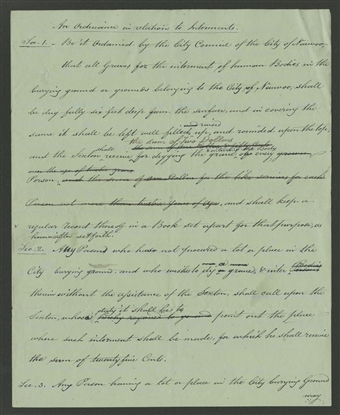 An Ordinance in relation to Interments.
Sec. 1. Be it Ordained by the City Council of the City of Nauvoo,
that all Graves for the interment of human Bodies in the
burying ground or grounds belonging to the City of Nauvoo, shall
be dug fully six feet deep from the surface, and in covering the
same it shall be left well filled up, and rounded upon the top,
and raised
the sum of two Dollars
and the Sexton shall receive for digging the grave, of every
& interring the Body
Person,
and shall keep a
regular record thereof in a Book set apart for that purpose, as
hereinafter set forth.
Sec. 2. Any Person who has not procured a lot or place in the
City burying ground, and who wishes to dig a grave, & inter
therein without the assistance of the Sexton, shall call upon the
Sexton, whose duty it shall be to point out the place
where such interment shall be made, for which he shall receive
the sum of twenty five Cents.
Sec. 3. Any Person having a lot or place in the City burying Ground
may,